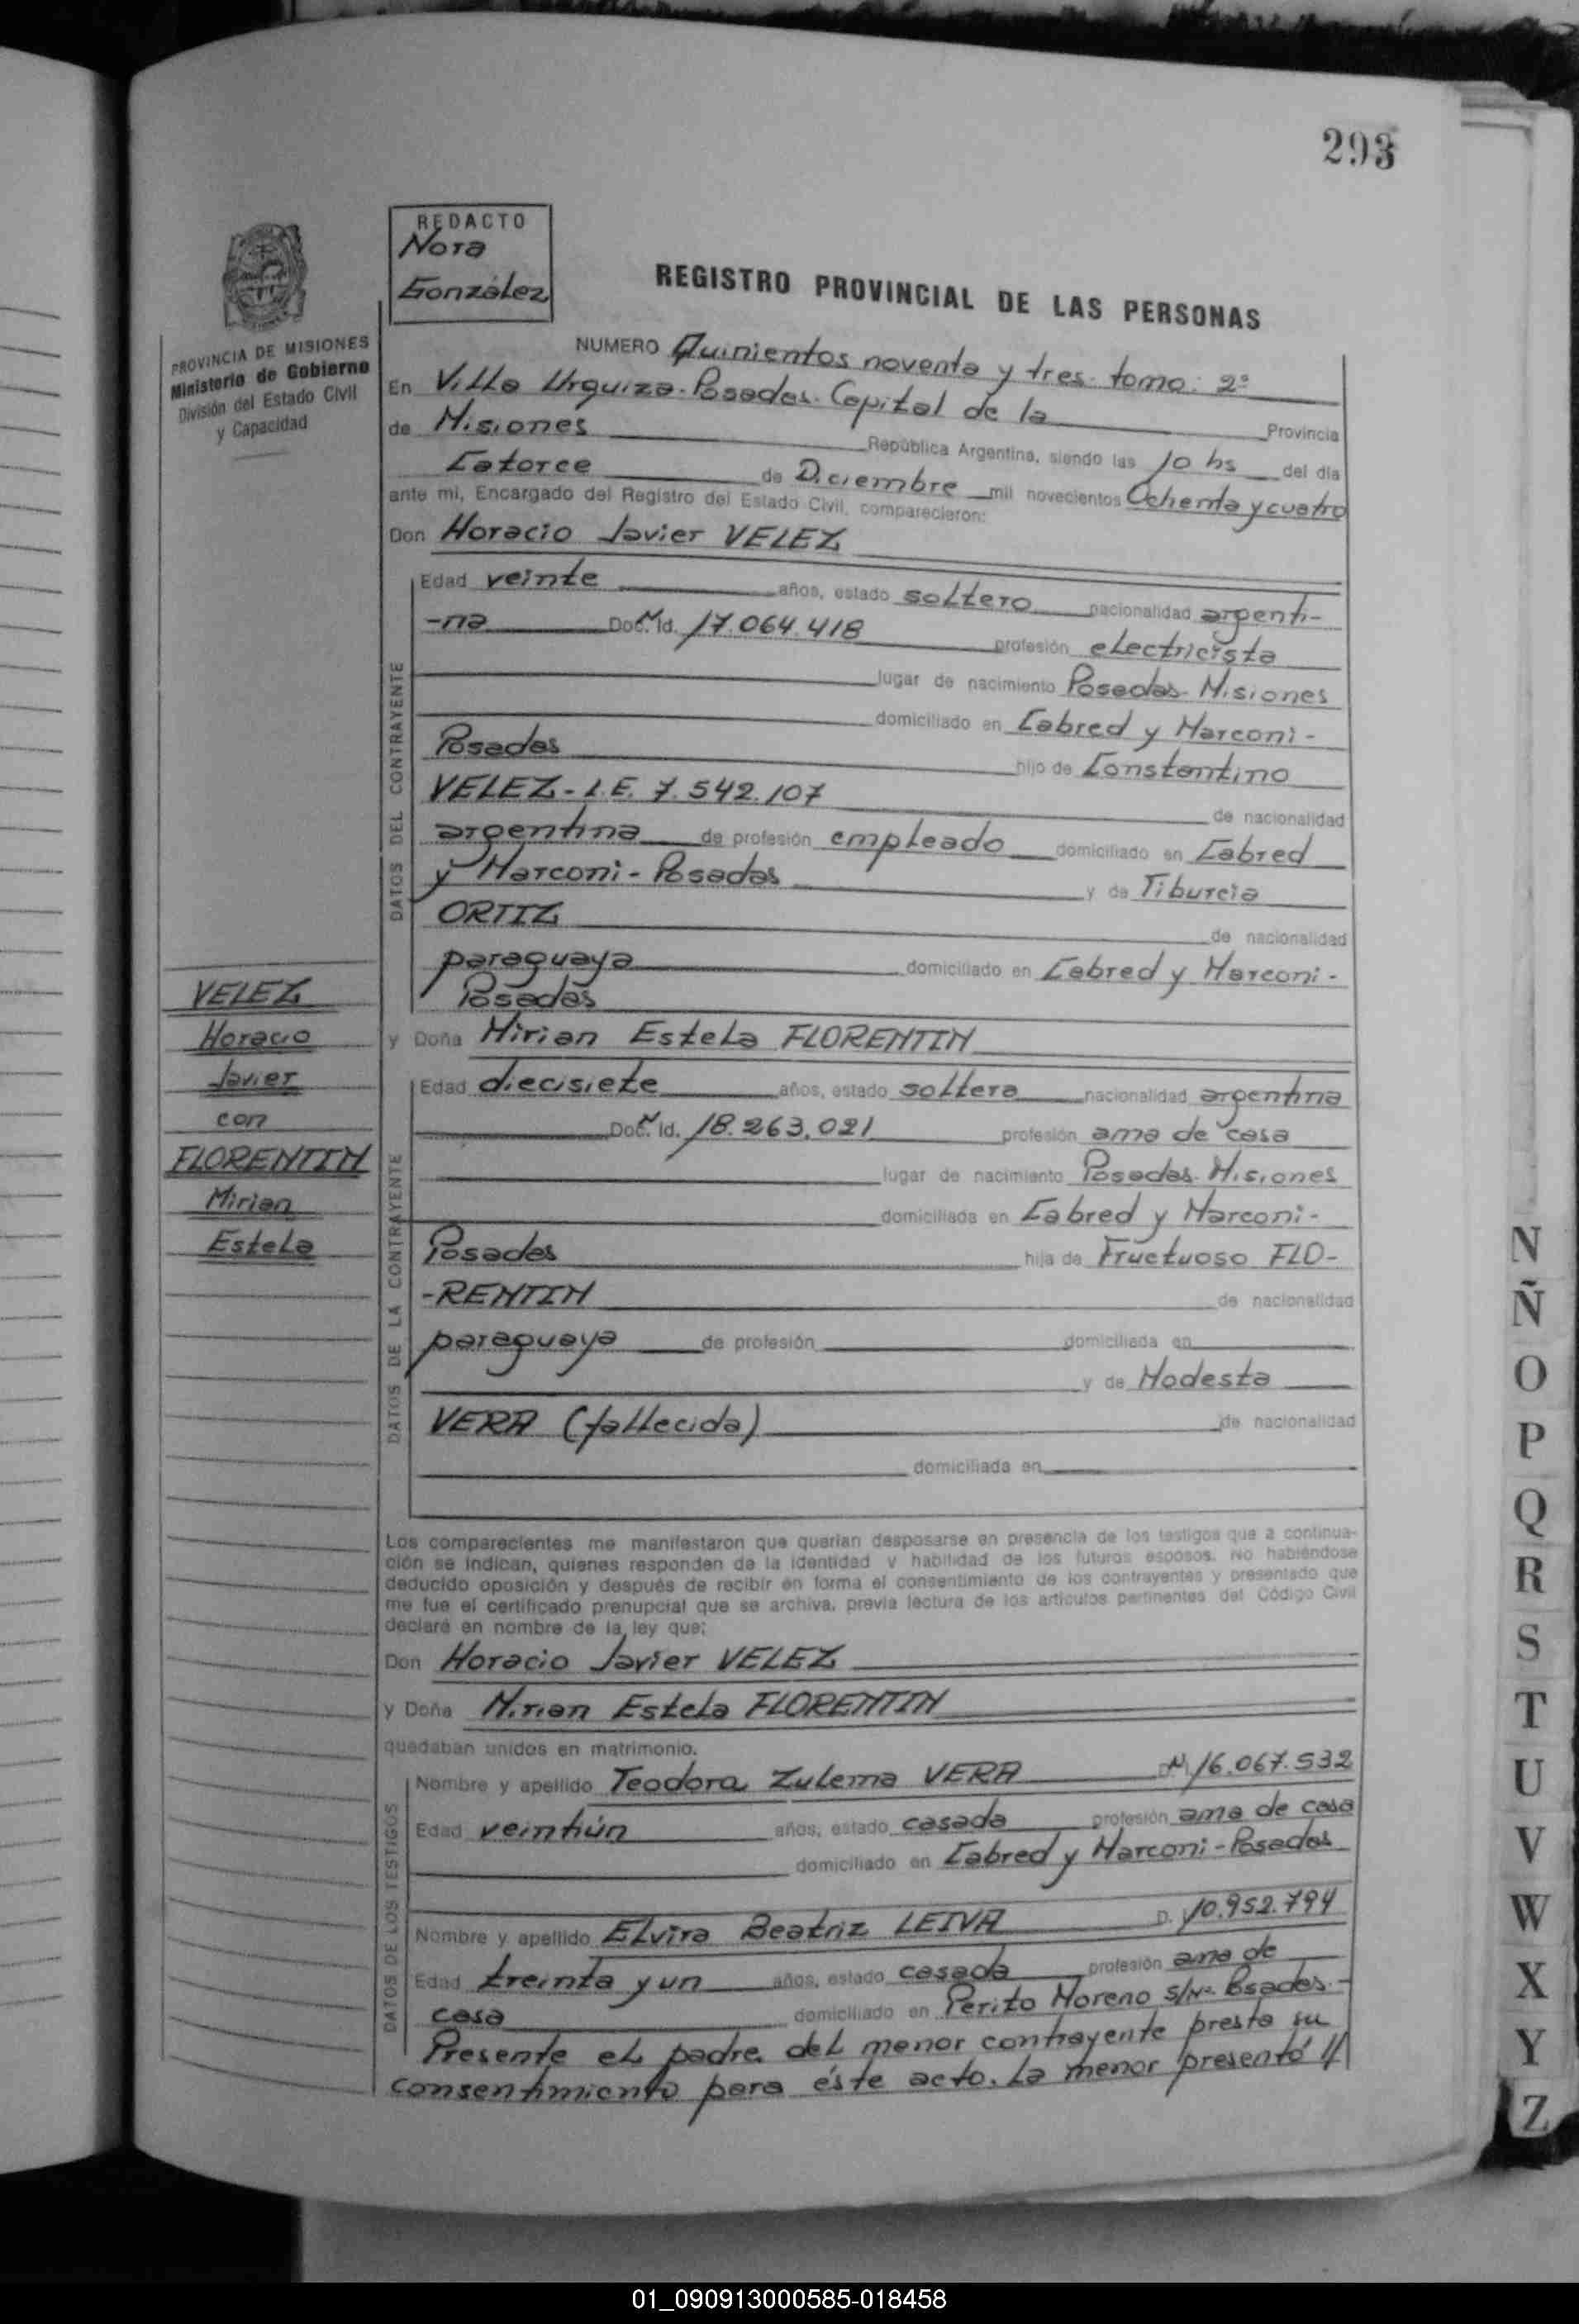 293
REDACTO
Nora
González
REGISTRO PROVINCIAL DE LAS PERSONAS
PROVINCIA DE MISIONES
Ministerio de Gobierno
División del Estado Civil
y Capacidad
NUMERO Quinientos noventa y tres. tomo: 2º
En Villa Urquiza-Posadas. Capital de la Provincia
de Misiones República Argentina, siendo las 10 hs del día
Catorce de Diciembre mil novecientos Ochenta y cuatro
ante mi, Encargado del Registro del Estado Civil, comparecieron:
Don Horacio Javier VELEZ
DATOS DEL CONTRAYENTE
Edad veinte años, estado soltero nacionalidad argenti-
-na Doc. Id. 17.064.418 profesión electricista
lugar de nacimiento Posadas-Misiones
domiciliado en Cabred y Marconi-
Posadas hijo de Constantino
VELEZ- L.E. 7.542.107 de nacionalidad
argentina de profesión empleado domiciliado en Cabred
y Marconi-Posadas y de Tiburcia
ORTIZ de nacionalidad
paraguaya domiciliado en Cabred y Marconi-
Posadas
VELEZ
Horacio
Javier
con
FLORENTIN
Mirian
Estela
y Doña Mirian Estela FLORENTIN
DATOS DE LA CONTRAYENTE
Edad diecisiete años, estado soltera nacionalidad argentina
Doc. Id. 18.263.021 profesión ama de casa
lugar de nacimiento Posadas-Misiones
domiciliada en Cabred y Marconi-
Posadas hija de Fructuoso FLO-
-RENTIN de nacionalidad
paraguaya de profesión domiciliada en
y de Modesta
VERA (fallecida) de nacionalidad
domiciliada en
Los comparecientes me manifestaron que querían desposarse en presencia de los testigos que a continua-
ción se indican, quienes responden de la identidad y habilidad de los futuros esposos. No habiéndose
deducido oposición y después de recibir en forma el consentimiento de los contrayentes y presentado que
me fue el certificado prenupcial que se archiva, previa lectura de los artículos pertinentes del Código Civil
declaré en nombre de la ley que:
Don Horacio Javier VELEZ
y Doña Mirian Estela FLORENTIN
quedaban unidos en matrimonio.
DATOS DE LOS TESTIGOS
Nombre y apellido Teodora Zulema VERA 16.067.532
Edad veintiún años, estado casada profesión ama de casa
domiciliado en Cabred y Marconi-Posadas
Nombre y apellido Elvira Beatriz LEIVA D. 10.952.794
Edad treinta y un años, estado casada profesión ama de
casa domiciliado en Perito Moreno s/Nº Posadas.-
Presente el padre del menor contrayente presta su
consentimiento para éste acto. La menor presentó //
N
Ñ
O
P
Q
R
S
T
U
V
W
X
Y
Z
01_090913000585-018458